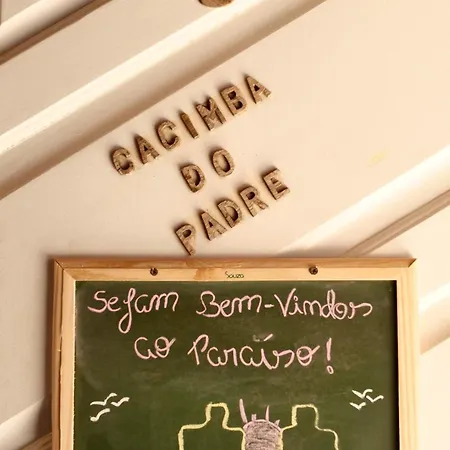 CACIMBA
DO
PADRE
Souza
Sejam Bem-Vindos
ao Paraíso!